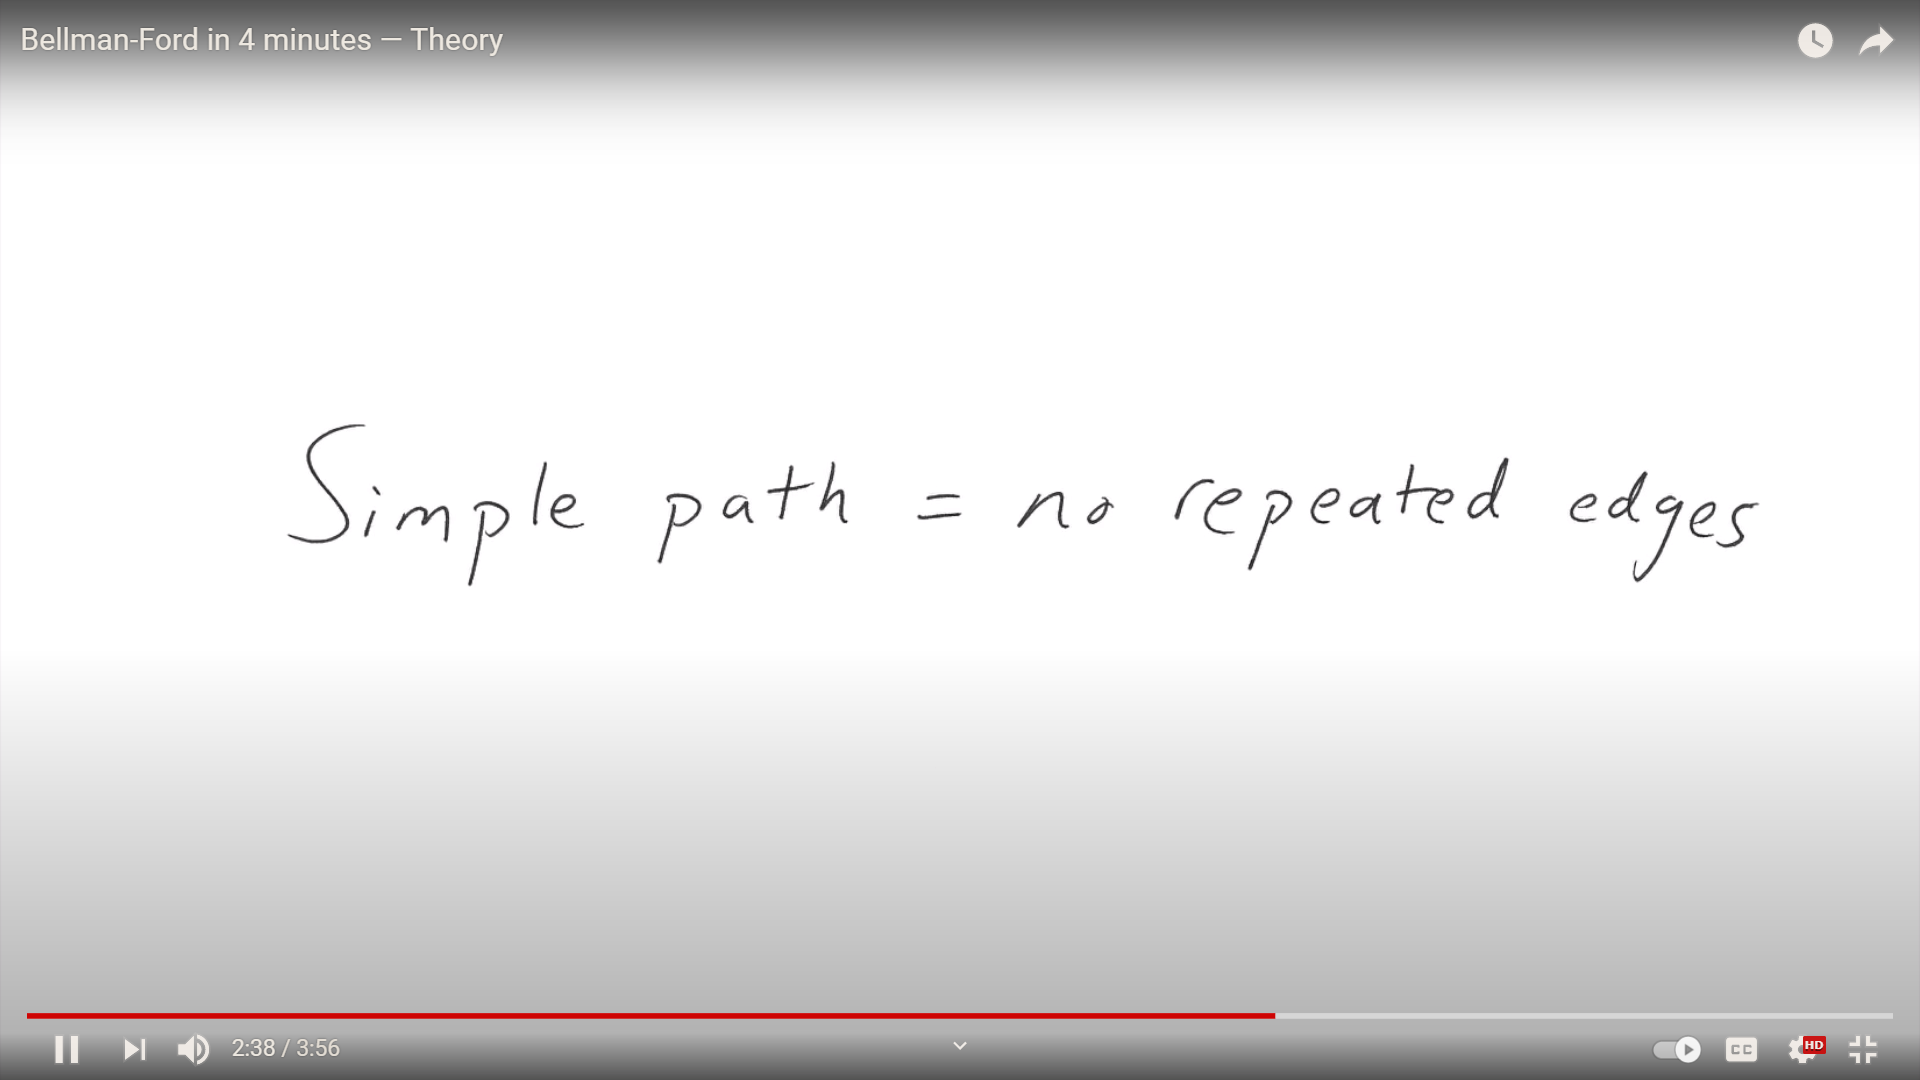 Bellman-Ford in 4 minutes — Theory
Simple path = no repeated edges
2:38 / 3:56
CC
HD